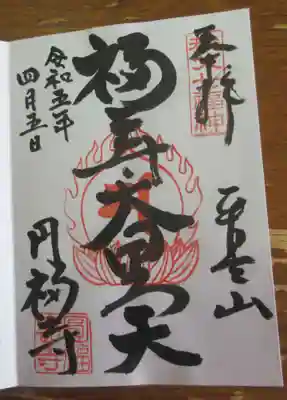 奉拝
平吉山
福寿大黒天
令和五年
四月五日
円福寺